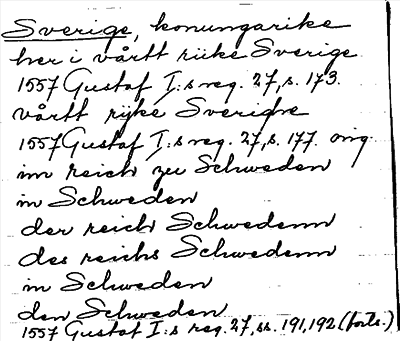 Sverige, konungarike
her i vårtt riike Sverige
1557 Gustaf I:s reg. 27, s. 173.
vårtt rijke Sverighe
1557 Gustaf I:s reg. 27, s. 177. orig.
im reich zu Schweden
in Schweden
der reich Schwedenn
des reichs Schwedenn
in Schweden
den Schweden
1557 Gustaf I:s reg. 27, ss. 191, 192 (forts.)